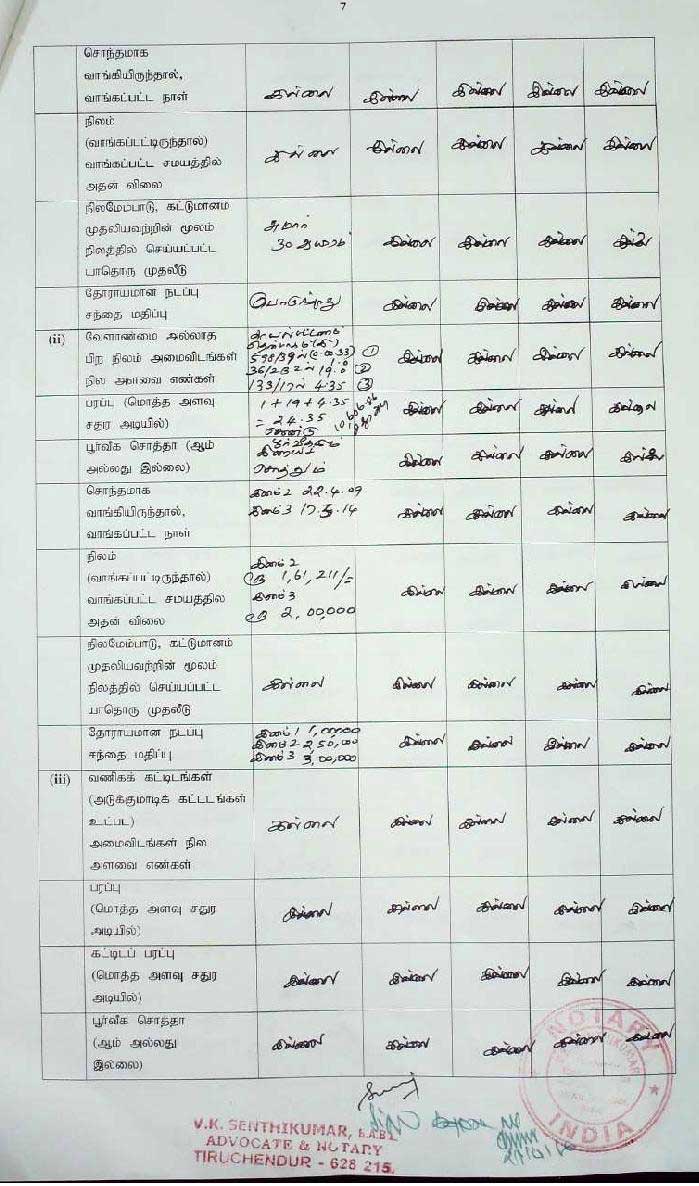 7
சொந்தமாக
வாங்கியிருந்தால்,
வாங்கப்பட்ட நாள் இல்லை இல்லை இல்லை இல்லை இல்லை
நிலம்
(வாங்கப்டட்டிருந்தால்)
வாங்கப்பட்ட சமயத்தில் இல்லை இல்லை இல்லை இல்லை இல்லை
அதன் விலை
நிலமேம்பாடு, கட்டுமானம
முதலியவற்றின் மூலம் சுமார்
நிலத்தில் செய்யப்பட்ட 30 இல்லை இல்லை இல்லை இல்லை
யாதொரு முதலீடு
தோராயமான நடப்பு
சந்தை மதிப்பு இல்லை இல்லை இல்லை இல்லை
(ii) வேளாண்மை அல்லாத
பிற நிலம் அமைவிடங்கள் இல்லை இல்லை இல்லை இல்லை
நில அளவை எண்கள் 133/17ல் 4.35 3
பரப்ட (மொத்த அளவு 1+19+4.35
சதுர அடியில்) = 24.35 இல்லை இல்லை இல்லை இல்லை
பூர்வீக சொத்தா (ஆம்
அல்லது இல்லை) இல்லை இல்லை இல்லை இல்லை
சொந்தமாக இனம் 2 22.4.09
வாங்கியிருந்தால், இனம் 3 17.5.14 இல்லை இல்லை இல்லை இல்லை
வாங்கப்பட்ட நாள்
நிலம் இனம் 2
(வாங்கப்பட்டிருந்தால்) ரூ 1,61,211/=
வாங்கப்பட்ட சமயத்தில இனம் 3 இல்லை இல்லை இல்லை இல்லை
அதன் விலை ரூ 2,00,000
நிலமேம்பாடு, கட்டுமானம்
முதலியவற்றின் மூலம்
நிலத்தில் செய்யப்பட்ட இல்லை இல்லை இல்லை இல்லை இல்லை
யாதொரு முதலீடு
தோராயமான நடப்பு இனம் 1 1,00,000
சந்தை மதிப்பு இனம் 2 2,50,000 இல்லை இல்லை இல்லை இல்லை
இனம் 3 3,00,000
(iii) வணிகக் கட்டிடங்கள்
(அடுக்குமாடிக் கட்டடங்கள்
உட்பட) இல்லை இல்லை இல்லை இல்லை இல்லை
அமைவிடங்கள் நில
அளவை எண்கள்
பரப்பு
(மொத்த அளவு சதுர இல்லை இல்லை இல்லை இல்லை இல்லை
அடியில்)
கட்டிடப் பரப்பு
(மொத்த அளவு சதுர இல்லை இல்லை இல்லை இல்லை இல்லை
அடியில்)
பூர்வீக சொத்தா
(ஆம் அல்லது இல்லை இல்லை இல்லை இல்லை இல்லை
இல்லை)
NOTARY
INDIA
V.K. SENTHIKUMAR, B.A.B.L
ADVOCATE & NOTARY
TIRUCHENDUR - 628 215.